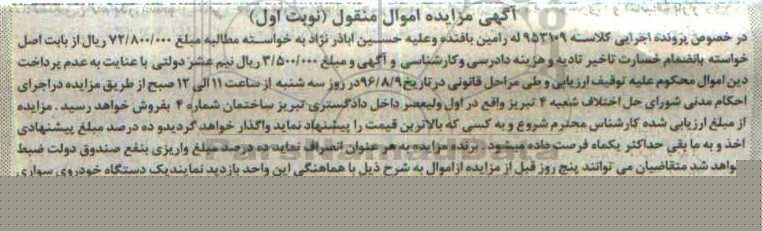 آگهی مزایده اموال منقول (نوبت اول)
در خصوص پرونده اجرایی کلاسه ۹۵۳۱۰۹ له رامین بافنده وعلیه حسین اباذر نژاد به خواسته مطالبه مبلغ ۷۲/۸۰۰/۰۰۰ ریال از بابت اصل
خواسته بانضمام خسارت تاخیر تادیه و هزینه دادرسی وکارشناسی و آگهی و مبلغ ۳/۵۰۰/۰۰۰ ریال نیم عشر دولتی با عنایت به عدم پرداخت
دین اموال محکوم علیه توقیف ارزیابی و طی مراحل قانونی در تاریخ ۹۶/۸/۹ در روز سه شنبه از ساعت ۱۱ الی ۱۲ صبح از طریق مزایده در اجرای
احکام مدنی شورای حل اختلاف شعبه ۴ تبریز واقع در اول ولیعصر داخل دادگستری تبریز ساختمان شماره ۴ بفروش خواهد رسید . مزایده
از مبلغ ارزیابی شده کارشناس محترم شروع و به کسی که بالاترین قیمت را پیشنهاد نماید واگذار خواهد گردید و ده درصد مبلغ پیشنهادی
اخذ و به ما بقی حداکثر یکماه فرصت داده میشود . برنده مزایده به هر عنوان انصراف نماید ده درصد مبلغ واریزی بنفع صندوق دولت ضبط
واهد شد متقاضیان می توانند پنج روز قبل از مزایده از اموال به شرح ذیل با هماهنگی این واحد بازدید نمایند یک دستگاه خودروی سواری